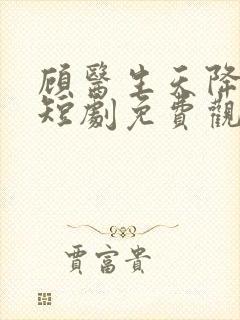 顾醫生天降
短劇免費觀
賈富貴